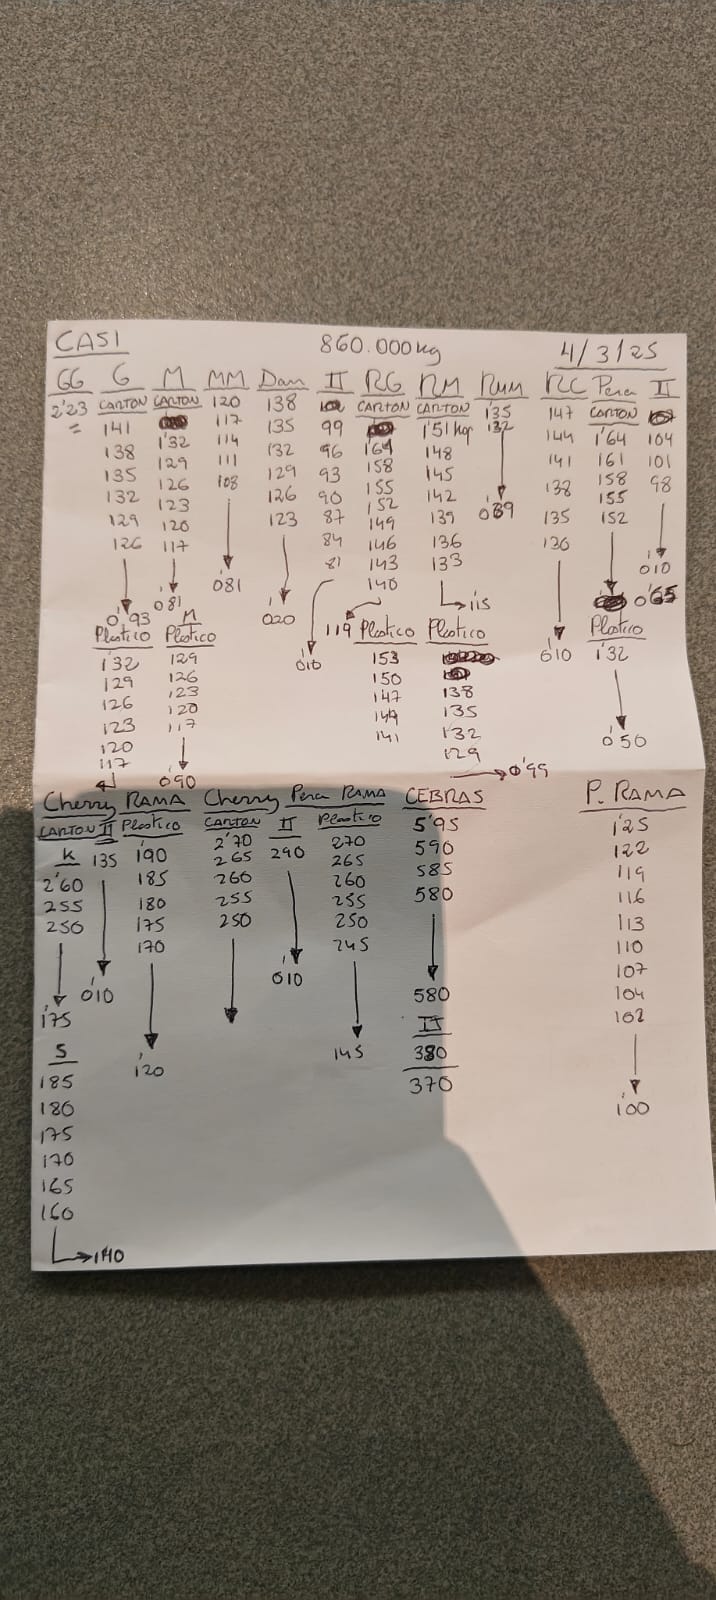 CASI 860.000kg 4/3/25
GG G M MM Dan II RG RM RMM RC Pera II
2'23 CARTON CARTON 120 138 CARTON CARTON 135 147 CARTON
= 141 117 135 99 1'64 1'51 kg 132 144 1'64 104
138 1'32 114 132 96 158 148 141 161 101
135 129 111 129 93 155 145 138 158 98
132 126 108 126 90 152 142 089 135 155
129 123 123 87 149 139 130 152
126 120 84 146 136
117 81 143 133 010
081 081 140 115 0'65
0'93 M 020 119 Plastico Plastico 010 Plastico
Plastico Plastico 010 153 1'32
132 129 150 138
129 126 147 135
126 123 144 132 0'50
123 120 141 129
120 117
117 090 0'99
Cherry RAMA Cherry Pera RAMA CEBRAS P. RAMA
CARTON II Plastico CARTON II Plastico 5'95 1'25
K 135 190 2'70 290 270 590 122
2'60 185 265 265 585 119
255 180 260 260 580 116
250 175 255 255 113
170 250 250 110
245 107
010 010 580 104
175 II 102
S 120 145 380
185 370
180 100
175
170
165
160
140